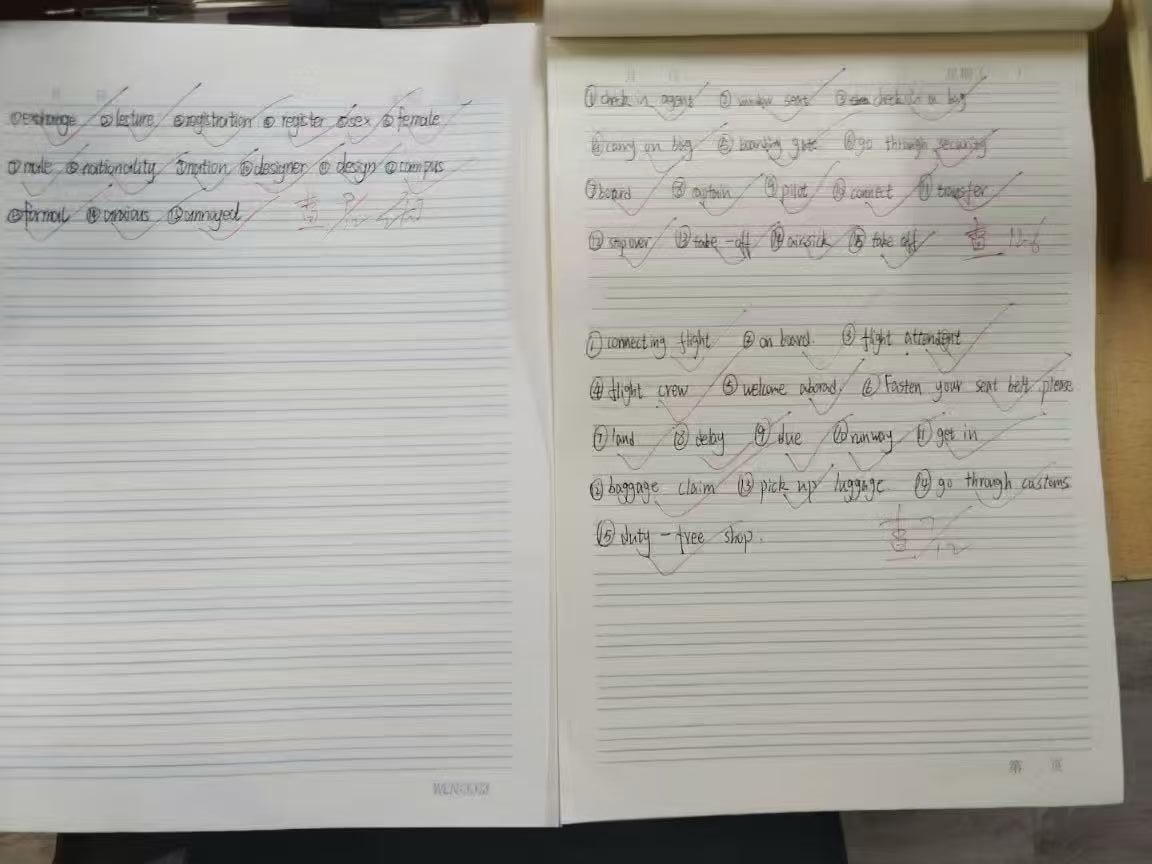 ①exchange ②lecture ③registration ④register ⑤sex ⑥female
⑦male ⑧nationality ⑨nation ⑩designer ⑪design ⑫campus
⑬formal ⑭anxious ⑮annoyed 查
WENSHENG
①check in agent ②window seat ③check in a bag
④carry on bag ⑤boarding gate ⑥go through security
⑦board ⑧captain ⑨pilot ⑩connect ⑪transfer
⑫stopover ⑬take-off ⑭airsick ⑮take off 查 12.6
①connecting flight ②on board. ③flight attendent
④flight crew ⑤welcome aborad ⑥Fasten your seat belt please
⑦land ⑧delay ⑨due ⑩runway ⑪get in
⑫baggage claim ⑬pick up luggage ⑭go through customs
⑮duty-free shop. 查
第 页